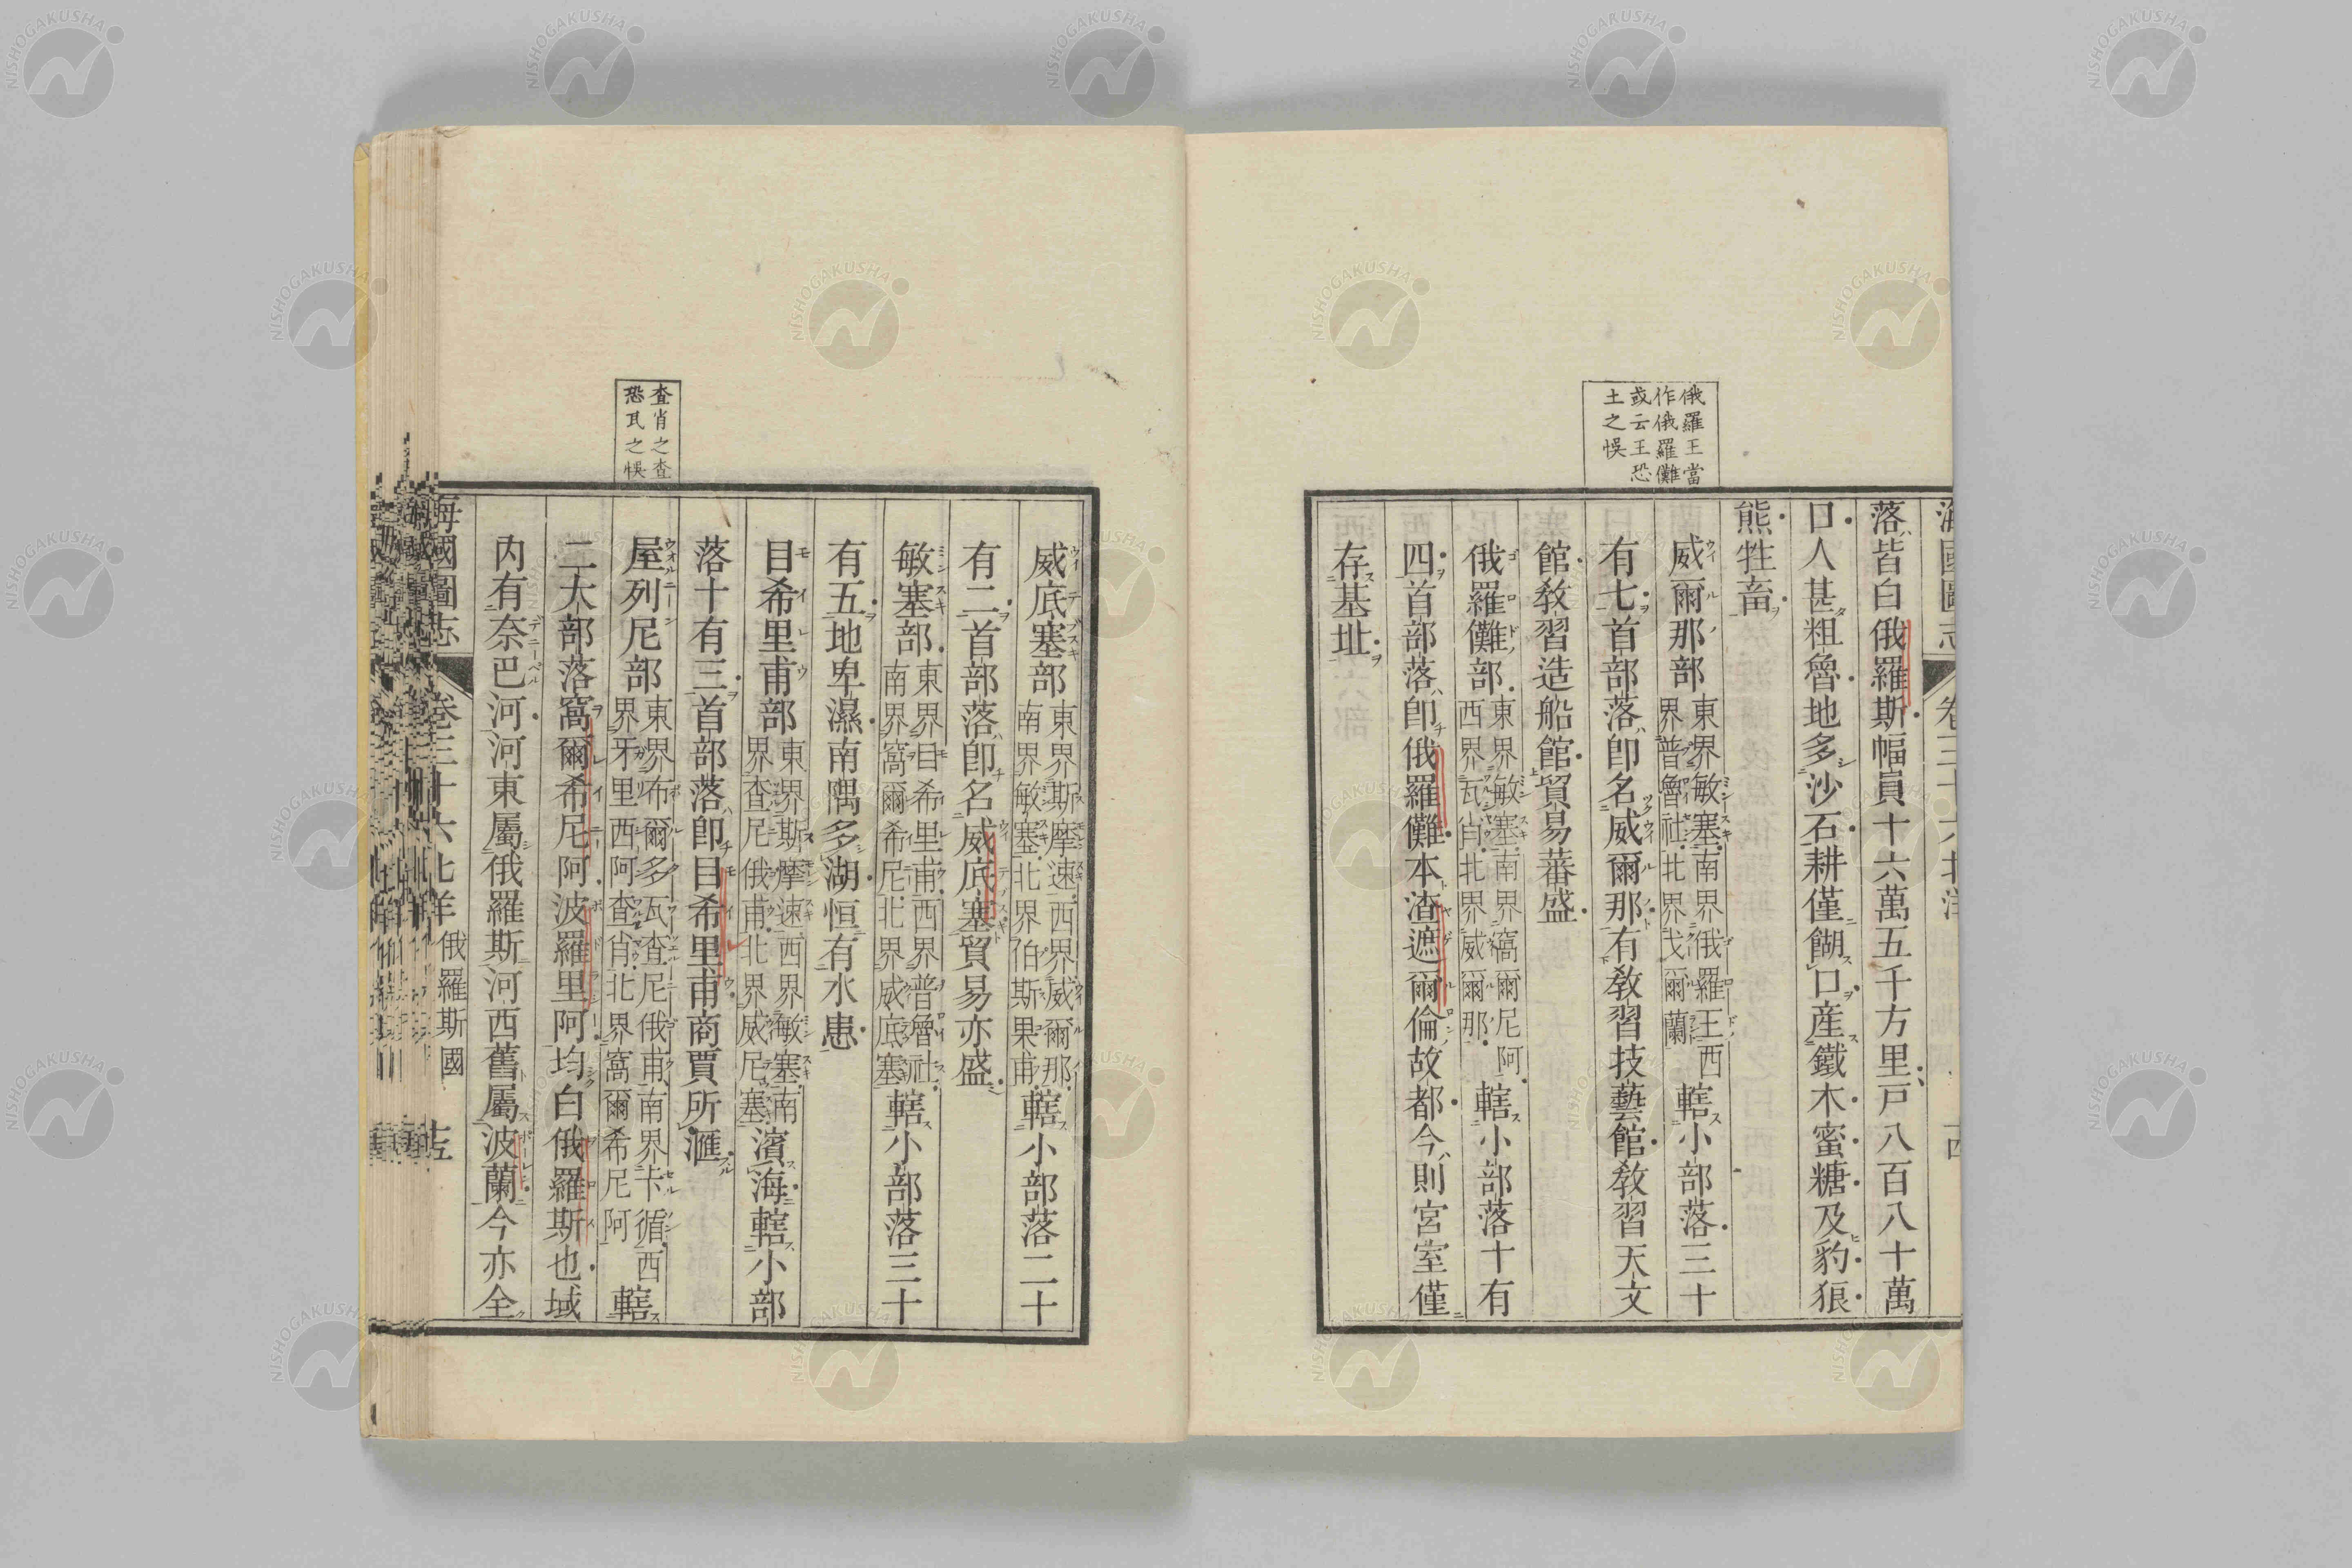 俄羅王當
作俄羅儺
或云王恐
土之悞
海國圖志 卷三十六北洋 十四
落皆白俄羅斯幅員十六萬五千方里戸八百八十萬
口人甚粗魯地多沙石耕僅餬口産鐵木蜜糖及豹狼
熊牲畜
威爾那部東界敏塞南界俄羅王西界普魯社北界戈爾蘭轄小部落三十
有七首部落卽名威爾那有敎習技藝館敎習天文
館敎習造船館貿易蕃盛
俄羅儺部東界敏塞南界窩爾尼阿西界瓦肖北界威爾那轄小部落十有
四首部落卽俄羅儺本渣遮爾倫故都今則宮室僅
存基址
查肖之查
恐瓦之悞
威底塞部東界斯摩速西界威爾那南界敏塞北界伯斯果甫轄小部落二十
有二首部落卽名威底塞貿易亦盛
敏塞部東界目希里甫西界普魯社南界窩爾希尼北界威底塞轄小部落三十
有五地卑濕南隅多湖恒有水患
目希里甫部東界斯摩速西界敏塞南界查尼俄甫北界威尼塞濱海轄小部
落十有三首部落卽目希里甫商賈所滙
屋列尼部東界布爾多瓦查尼俄甫南界卡循西界牙里西阿查肖北界窩爾希尼阿轄
二大部落窩爾希尼阿波羅里阿均白俄羅斯也域
内有奈巴河河東屬俄羅斯河西舊屬波蘭今亦全
海國圖志 卷三十六北洋 俄羅斯國 十五